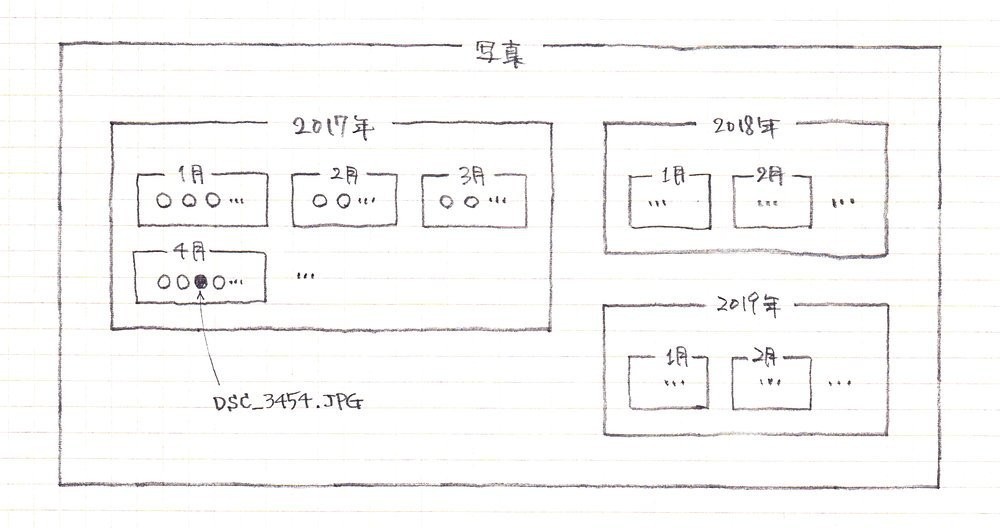 写真
2017年
1月
2月
3月
...
...
...
4月
...
...
DSC_3454.JPG
2018年
1月
2月
...
...
...
2019年
1月
2月
...
...
...